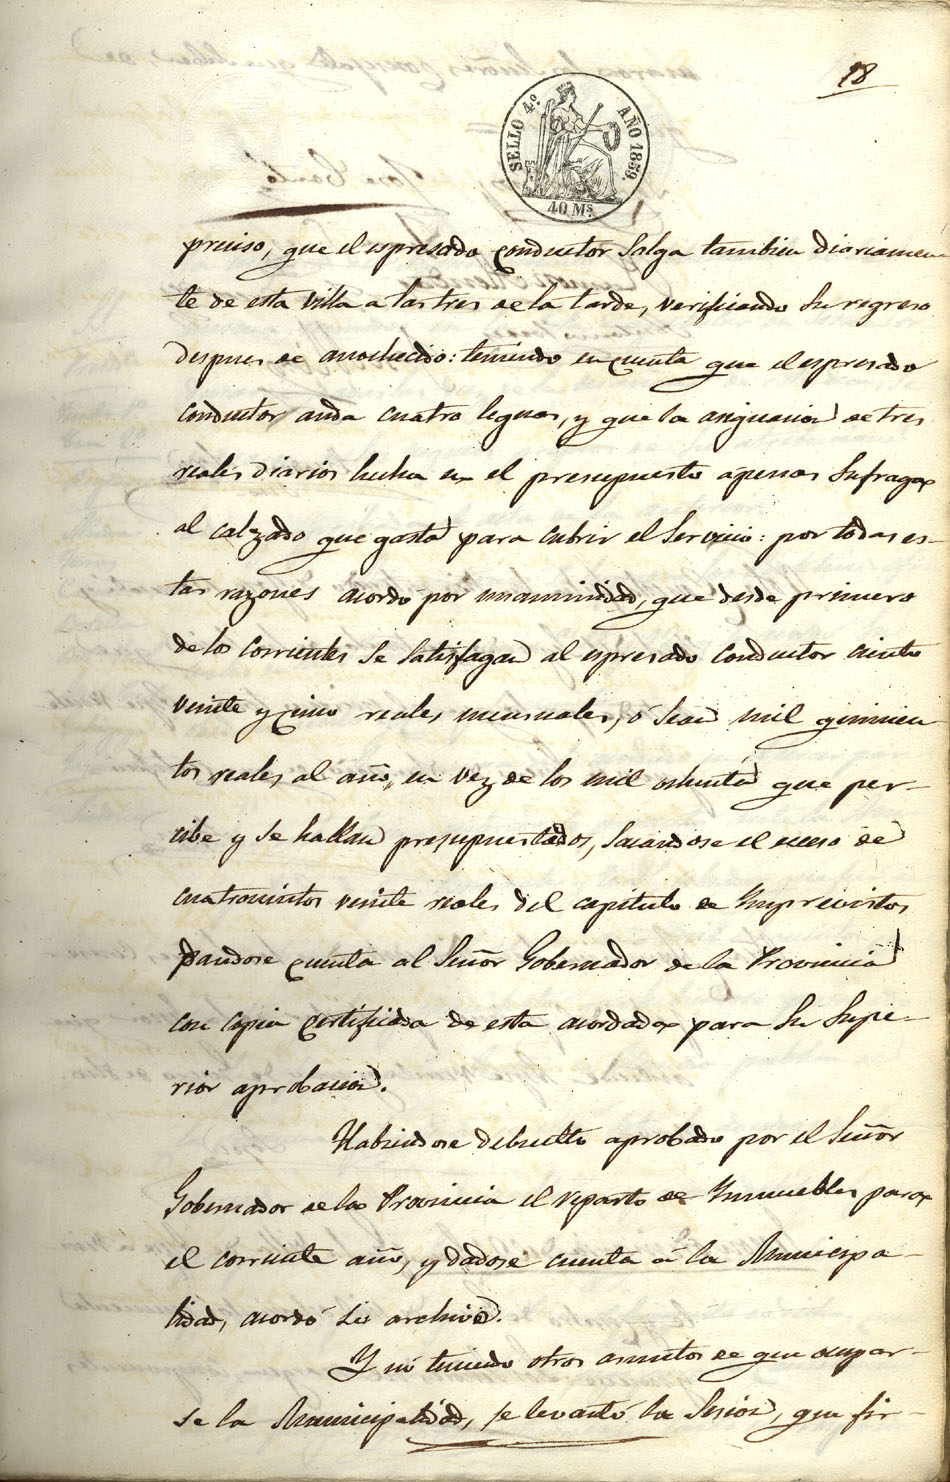 18
SELLO 4º AÑO 1859.
40 Ms
preciso, que el espresado conductor Salga tambien diariamen
te de esta villa a las tres de la tarde, verificando Su regreso
despues de anochecido: teniendo en cuenta que el espresado
conductor anda cuatro leguas, y que la asignacion de tres
reales diarios hecha en el presupuesto apenas Sufraga
al calzado que gasta para cubrir el Servicio: por todas es-
tas razones acordó por unanimidad, que desde primero
de los corrientes Se Satisfagan al espresado conductor ciento
veinte y cinco reales mensuales, ó Sean mil quinien-
tos reales al año, en vez de los mil ochenta que per-
cibe y Se hallan presupuestados, Sacandose el exceso de
cuatrocientos veinte reales del capitulo de Imprevistos
dandose cuenta al Señor Gobernador de la Provincia
con copia certificada de esta acordada para Su Supe-
rior aprobacion.
Habiendose debuelto aprobado por el Señor
Gobernador de la Provincia el reparto de Inmuebles para
el corriente año, y dadose cuenta á la Municipa-
lidad, acordó Su archivo.
Y nó teniendo otros asuntos de que ocupar-
se la Municipalidad, se levantó la Sesion, que fir-